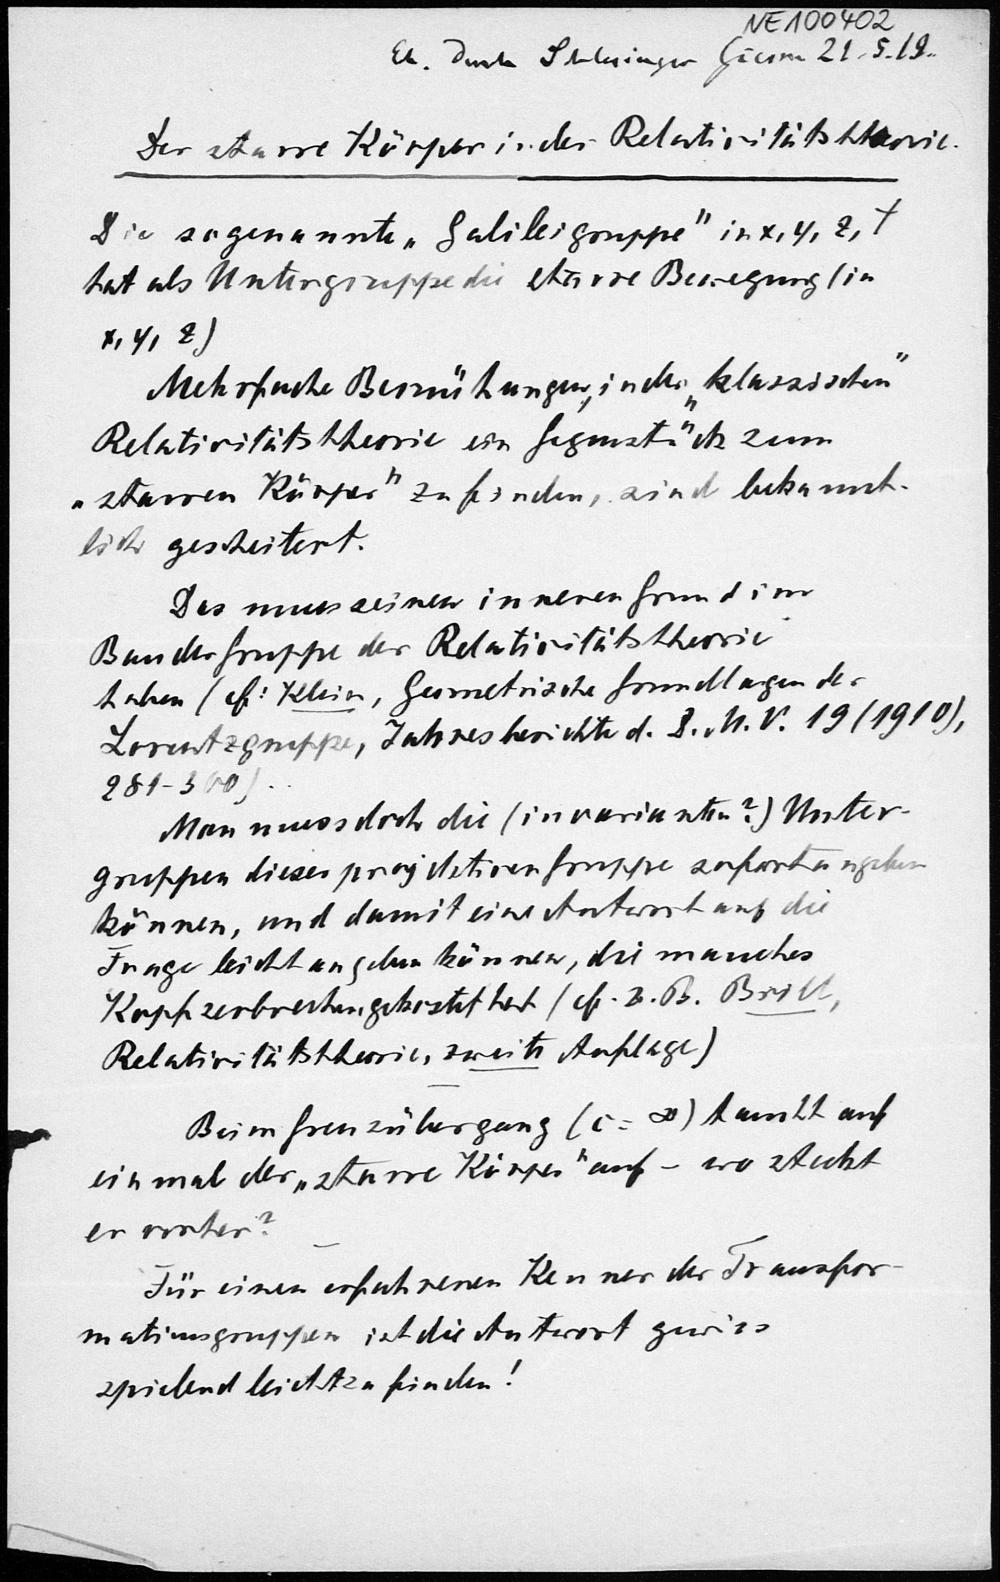 NE100402
Eh. durch Schlesinger Giessen 21.5.19.
Der starre Körper in der Relativitätstheorie.
Die sogenannte „Galileigruppe" in x, y, z, t
hat als Untergruppe die starre Bewegung (in
x, y, z)
Mehrfache Bemühungen, in der „klassischen"
Relativitätstheorie ein Gegenstück zum
„starren Körper" zu finden, sind bekannt-
lich gescheitert.
Das muss seinen inneren Grund im
Bau der Gruppe der Relativitätstheorie
haben (cf: Klein, Geometrische Grundlagen der
Lorentzgruppe, Jahresberichte d. D. M. V. 19 (1910),
281-300).
Man muss doch die (invarianten?) Unter-
gruppen dieser projektiven Gruppe sofort angeben
können, und damit eine Antwort auf die
Frage leicht angeben können, die manches
Kopfzerbrechen gekostet hat (cf. z. B. Brill,
Relativitätstheorie, zweite Auflage)
Beim Grenzübergang (c = ∞) taucht auf
einmal der „starre Körper" auf – wo steckt
er vorher?
Für einen erfahrenen Kenner der Transfor-
mationsgruppen ist die Antwort gewiss
spielend leicht zu finden!